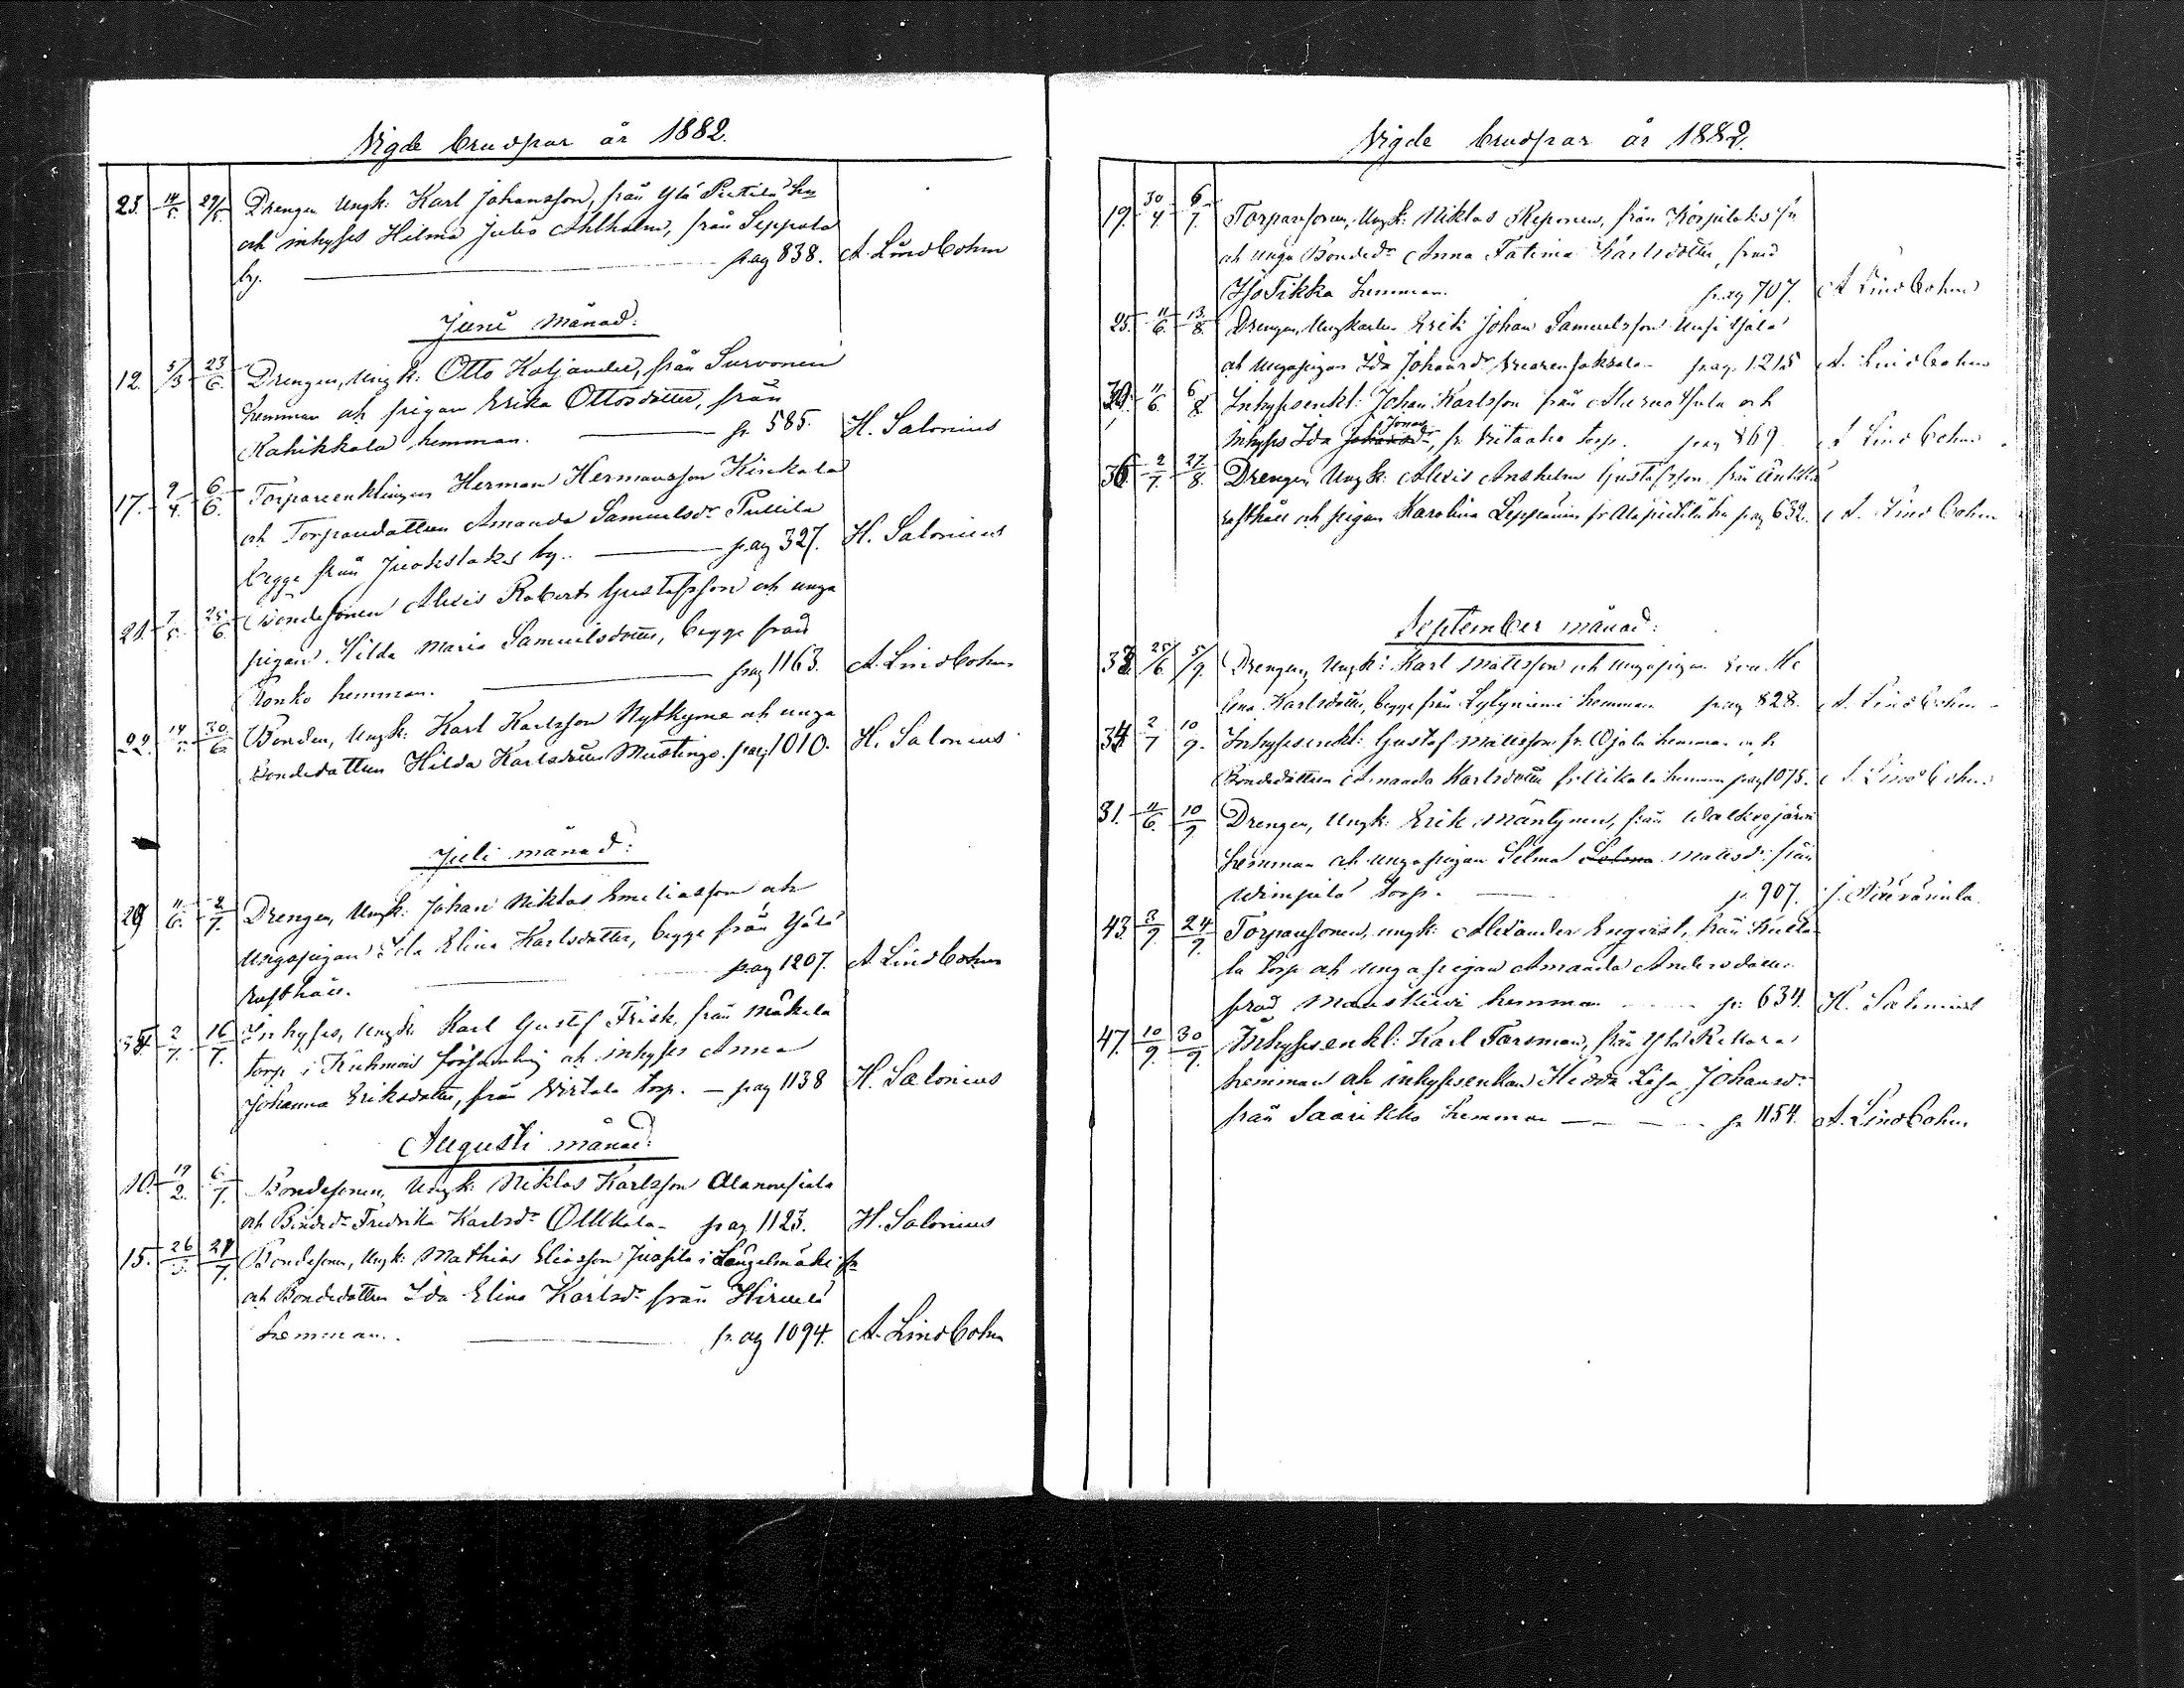 Vigde brudpar år 1882.
23. 14/5. 29/5. Drengen Ungk: Karl Johansson, från Ylä Pietilä hn
och inhyses Hilma Julia Ahlholm, från Seppola
by. pag 838. A. Lindbohm
Juni månad:
12. 5/3 23/6. Drengen, Ungk: Otto Koljander, från Survonen
hemman och pigan Erika Ottosdotter, från
Rahikkala hemman. p. 585. H. Salonius
17. 9/4. 6/6. Torpareenklingen Herman Hermansson Kinkala
och Torparedottren Amanda Samuelsdr Pullila
begge från Juokslaks by. pag 327. H. Salonius
21. 7/5. 25/6 Bondesonen Alexis Robert Gustafsson och unga
pigan Hilda Maria Samuelsdotter, begge från
Ronko hemman. pag 1163. A. Lindbohm
22. 14/5. 30/6 Bonden, Ungk: Karl Karlsson Nytkyme och unga
Bondedottren Hilda Karlsdotter Mustingo. pag 1010. H. Salonius
Juli månad:
29 11/6. 2/7. Drengen, Ungk: Johan Niklas Emeliasson och
Ungapigan Ida Elina Karlsdotter, begge från Yälä
rusthåll. pag 1207. A. Lindbohm
2/7. 16/7. Inhyses, Ungk: Karl Gustaf Frisk, från Mäkelä
torp i Kuhmois församling och inhyses Anna
Johanna Eriksdotter, från Virtala torp. — pag 1138 H. Salonius
Augusti månad:
10. 19/2. 6/7. Bondesonen, Ungk: Niklas Karlsson Alanousiala
och Bonded: Fredrika Karlsdr Ollikala pag 1123. H. Salonius
15. 26/3. 27/7. Bondesonen, Ungk: Mathias Eliasson Juosila i Längelmäki sn
och Bondedottren Ida Elina Karlsdr från Hirvelä
hemman. pag 1094. A. Lindbohm
Vigde brudpar år 1882.
19. 30/4. 6/7. Torparesonen, Ungk: Niklas Reponen, från Korpilaks sn
och unga Bondedr Anna Fatima Karlsdotter, från
Iso Tikka hemman. pag 707. A Lindbohm
25. 11/6. 13/8. Drengen, Ungkarlen Erik Johan Samuelsson Uusi Yjälä
och Ungapigan Ida Johansdr pag. 1215 A. Lindbohm
11/6. 6/8. Inhysesenkl: Johan Karlsson från och
Inhyses Ida Johansdr Jonas, fr Viitaaho torp. pag 869 A Lindbohm
36. 2/7. 27/8. Drengen Ungk: Alexis Anshelm Gustafsson från Anttila
rusthåll och pigan Karolina Leppänen fr Alapietilä hn pag 632. A. Lindbohm
September månad:
25/6. 5/9. Drengen, Ungk: Karl Mattsson och Ungapigan Eva He
lena Karlsdotter, begge från Lylyniemi hemman pag 828. A. Lindbohm
34. 2/7 10/9. Inhysesenkl: Gustaf Mattsson fr. Ojala hemman och
Bondedottren Amanda Karlsdotter fr. Ulikala hemman pag 1075. A. Lindbohm
31. 11/6. 10/9. Drengen, Ungk: Erik Mäntynen, från Walkeajärvi
hemman och ungapigan Selma Selma Mattsdr: från
Wimpilä torp. p. 907. J.
43. 3/9. 24/9. Torparesonen, ungk: Alexander Enqvist, från Kulta
la torp och ungapigan Amanda Andersdotter
från Manskivi hemman p: 634. H. Salonius
47. 10/9. 30/9. Inhysesenkl: Karl Forsman, från Ylä Rekola
hemman och inhysesenkan Hedda Lisa Johansdr
från Saarikko hemman p. 1154. A. Lindbohm